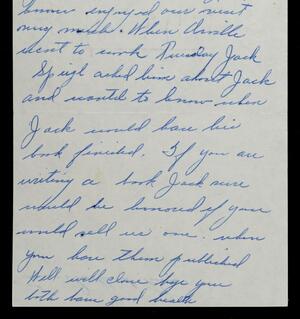 enjoyed our visit
very much. When Orville
went to work Tuesday Jack
Spigl asked him about Jack
and wanted to know when
Jack would have his
book finished. If you are
writing a book Jack sure
would be honored if you
would sell us one. when
you have them published
Well will close hope you
both have good health